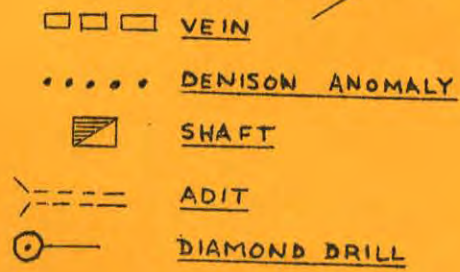 VEIN
DENISON ANOMALY
SHAFT
ADIT
DIAMOND DRILL